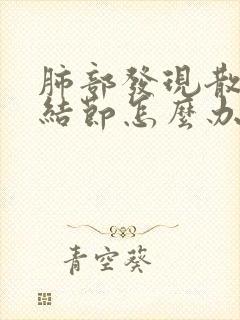 肺部發現散
結節怎麼办
青空葵